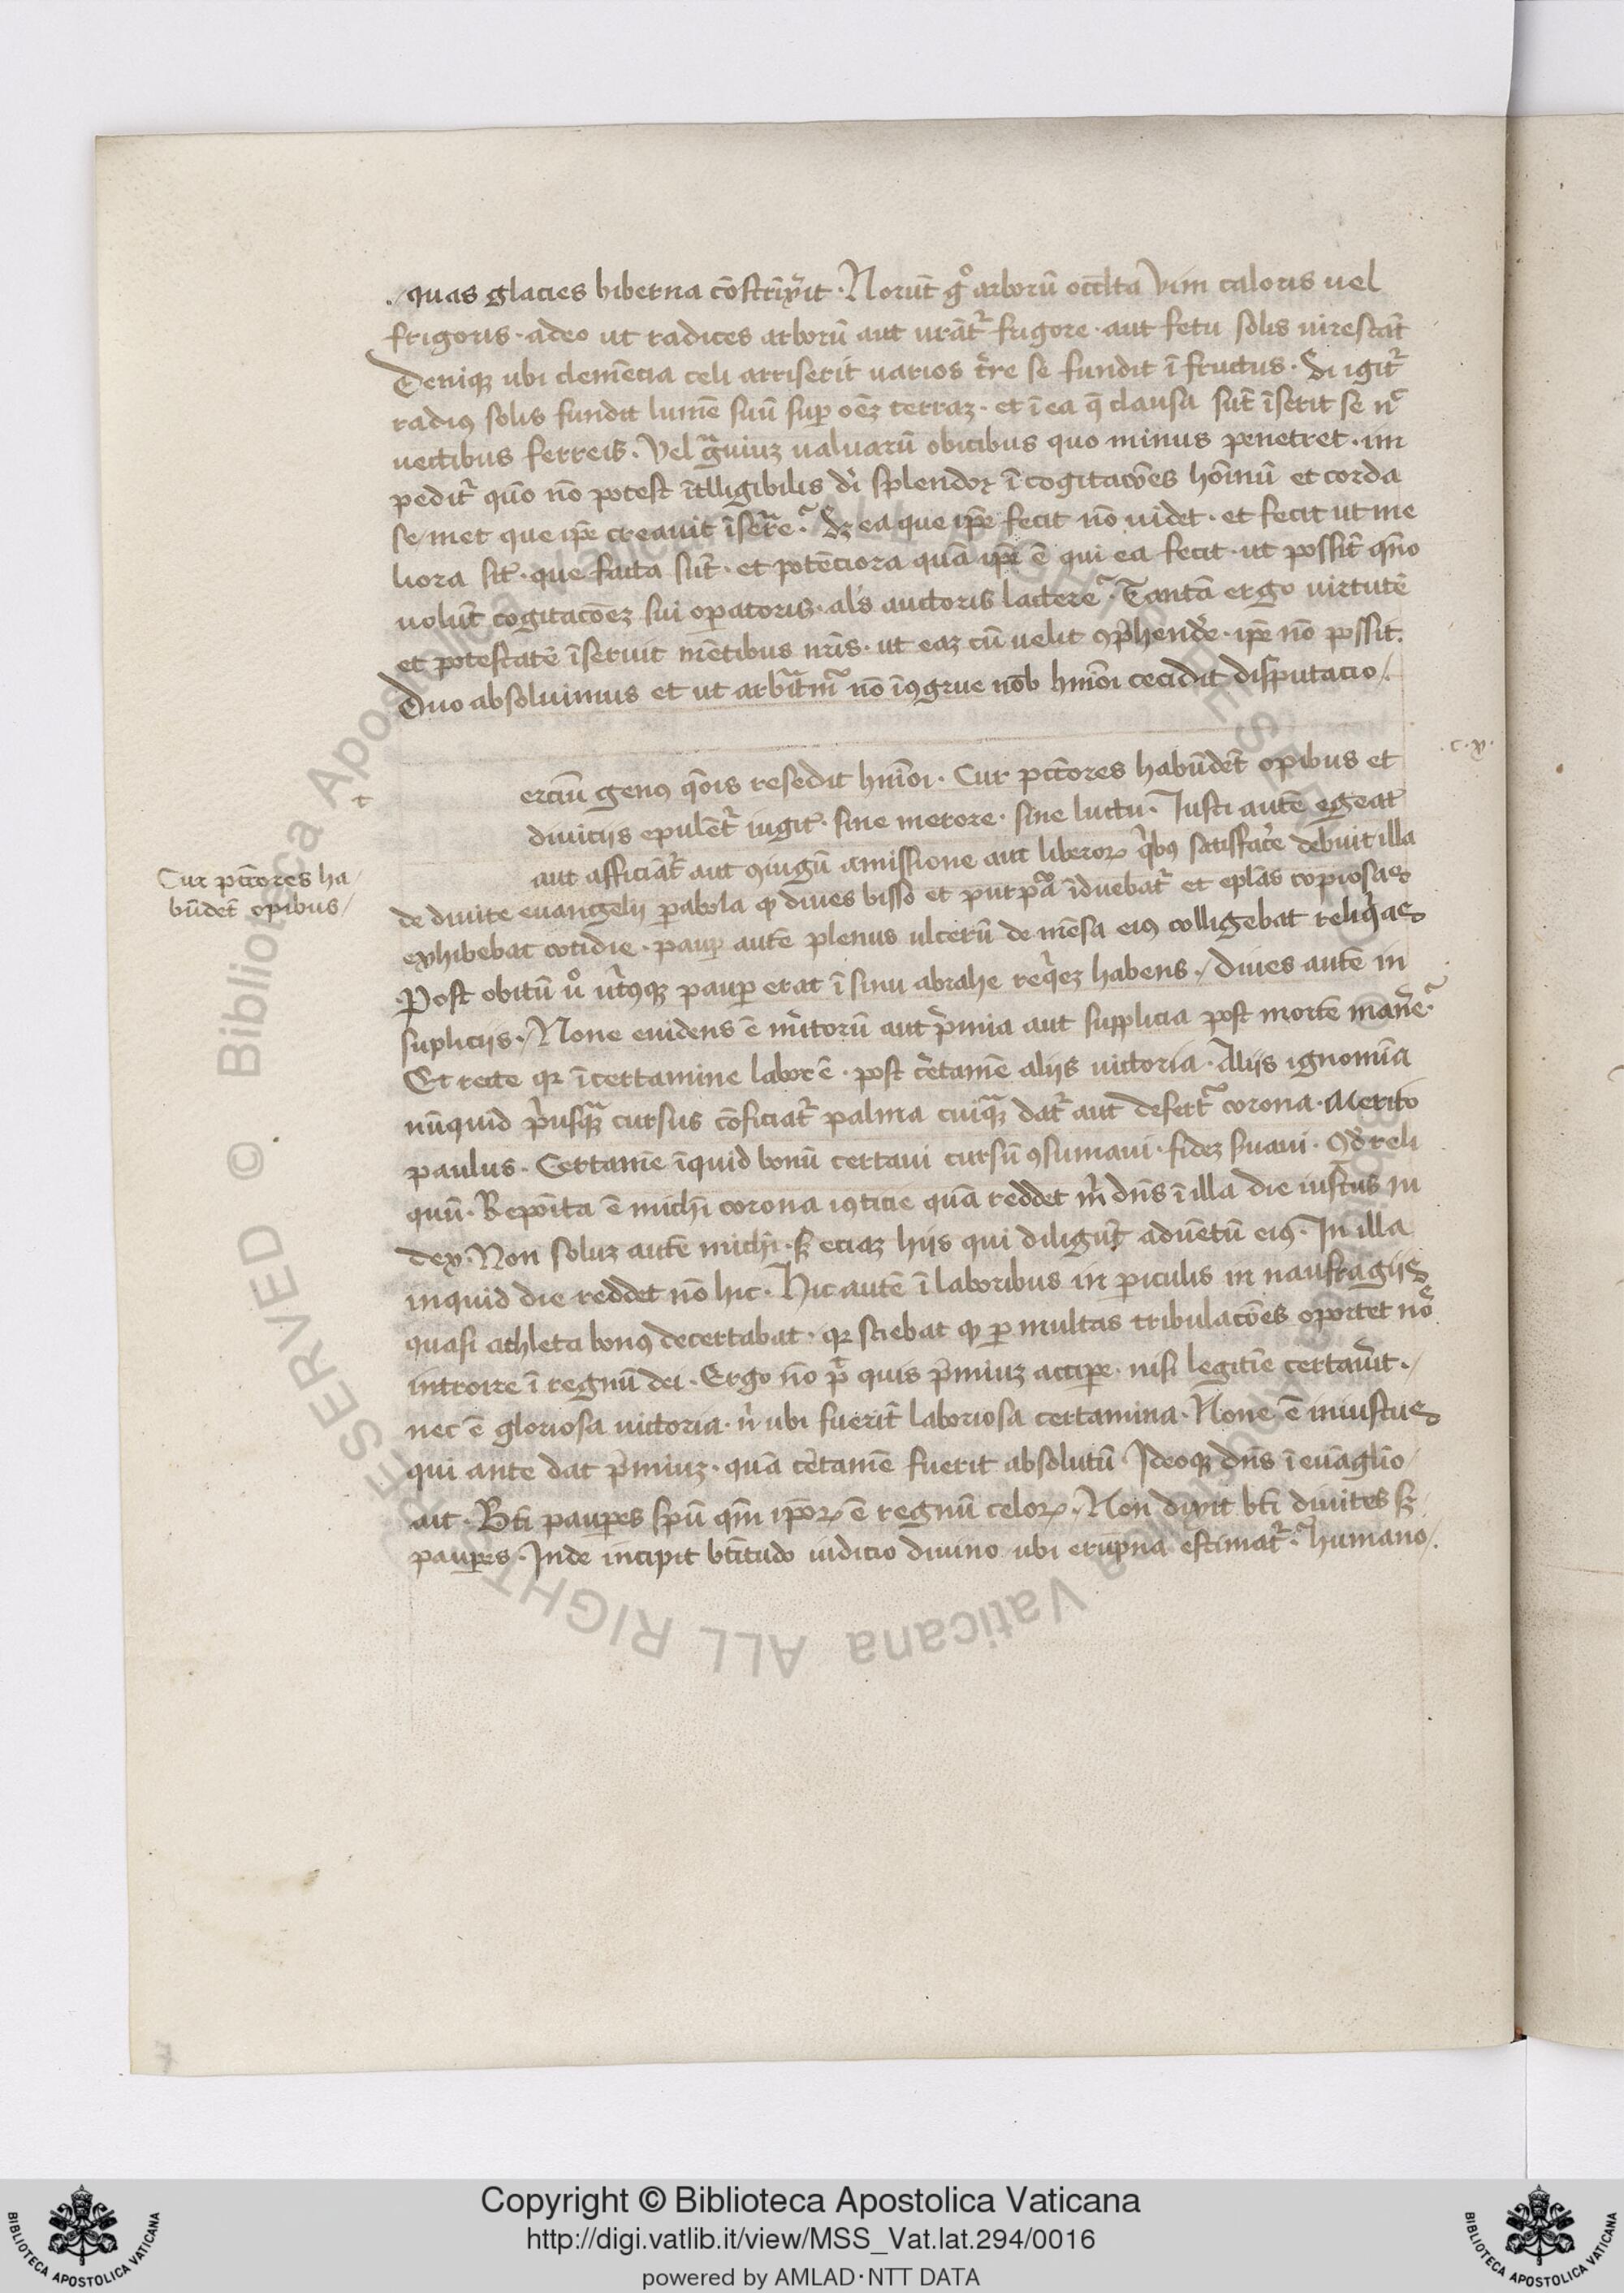 quas glacies hiberna cōstrīx̄it · Norūt gͦ arborū occlta vim caloris uel
frigoris · adeo ut radices arborū aut urāt᷑ frigore · aut fetu solis uirescāt
Deniqꝫ ubi clemēcia celi arriserit uarios t̄re se fundit ī fructus · Si igit᷑
radiꝰ solis fundit lumē suū suꝑ oēꝫ terraꝫ · et ī ea q̄ clausa sūt īserit se nͨ
uectibus ferreis · Vel gͣuiuꝫ ualuarū obicibus quo minus penetret · im
pedit᷑ quō nō potest ītlligibilis dī splendoꝝ ī cogitacōes hoīnū et corda
se/met que ip̄e creauit īserͣe · Sꝫ ea que ip̄e fecit nō uidet · et fecit ut me
liora sīt · que facta sūt · et potēciora quā ip̄e ē qui ea fecit · ut possīt qn̄o
uolūt cogitacōeꝫ sui oꝑatoris · al's auctoris lactere · Tantā ergo virtutē
et potestatē īseruit mētibus nr̄is · ut eaꝫ cū uelit ꝯp̄hendē · ip̄e nō possit ·
Duo absoluimus et ut arbͥtm̄ᷓ nō īꝯgrue nob hm̄oi cecidit disputacio /
c · x ·
t
erciū genꝰ q̄ōis resedit hm̄oi · Cur pctōres habūdēt opibus et
diuiciis epulēt᷑ iugit᷑ · sine merore · sine luctu · Iusti autē egeāt
aut afficiāt᷑ aut ꝯiugū amissione aut liberoꝝ qͥbꝰ satisfacͤe debuit illa
Cur pctōres ha/
būdēt opibus/
de diuite euangelii ꝑabola ꝙ diues bisso et purpͣa īduebat᷑ et eplās copiosas
exhibebat cotidie · pauꝑ autē plenus ulcerū de mēsa eiꝰ colligebat reliqͥas
Post obitū uͦ utͥꝰqꝫ pauꝑ erat ī sinu abrahe reqͥeꝫ habens · / Diues autē in
supliciis · / None euidens ē m̄itorū aut p̄mia aut supplicia post mortē manē ·
Et recte qꝛ ī certamine labor ē · post c̄etamē aliis uictoria · Aliis ignomīa
nūquid pͥusqͣꝫ cursus cōficiat᷑ palma cuiqͣꝫ dat᷑ aut defertͬ corona · Merito
paulus · Certamē īquid bonū certaui cursū ꝯsumaui · fideꝫ s̄uaui · Qd̄ reli
quū · Repoīta ē michī corona iꝰticie quā reddet m̄ dn̄s ī illa die iustꝰ iu
dex · Non soluꝫ autē michī · sꝫ eciaꝫ hiis qui diligūt aduētū eiꝰ · In illa
inquid die reddet nō hic · Hic autē ī laboribus in ꝑiculis in naufragiis
quasi athleta bonꝰ decertabat · qꝛ sciebat ꝙ ꝑ multas tribulacōes oportet nō
introire ī regnū dei · Ergo nō pͭ quis p̄miuꝫ acciꝑe · nisi legitīe certaūit · /
nec ē gloriosa uictoria · nͥ ubi fuerīt laboriosa certamina · None ē iniustus
qui ante dat p̄miuꝫ · quā c̄etamē fuerit absolutū Ideoqꝫ dn̄s ī euāgl̄io
ait · Bt̄i pauꝑes spū qm̄ ip̄oꝝ ē regnū celoꝝ · Non dixit bt̄i diuites sꝫ
pauꝑes · Inde incipit bt̄itudo iudicio diuino ubi erūpna estimat᷑ humano / ·
© Biblioteca Apostolica Vaticana ALL RIGHTS RESERVED
Copyright © Biblioteca Apostolica Vaticana
http://digi.vatlib.it/view/MSS_Vat.lat.294/0016
powered by AMLAD·NTT DATA
BIBLIOTECA APOSTOLICA VATICANA
BIBLIOTECA APOSTOLICA VATICANA